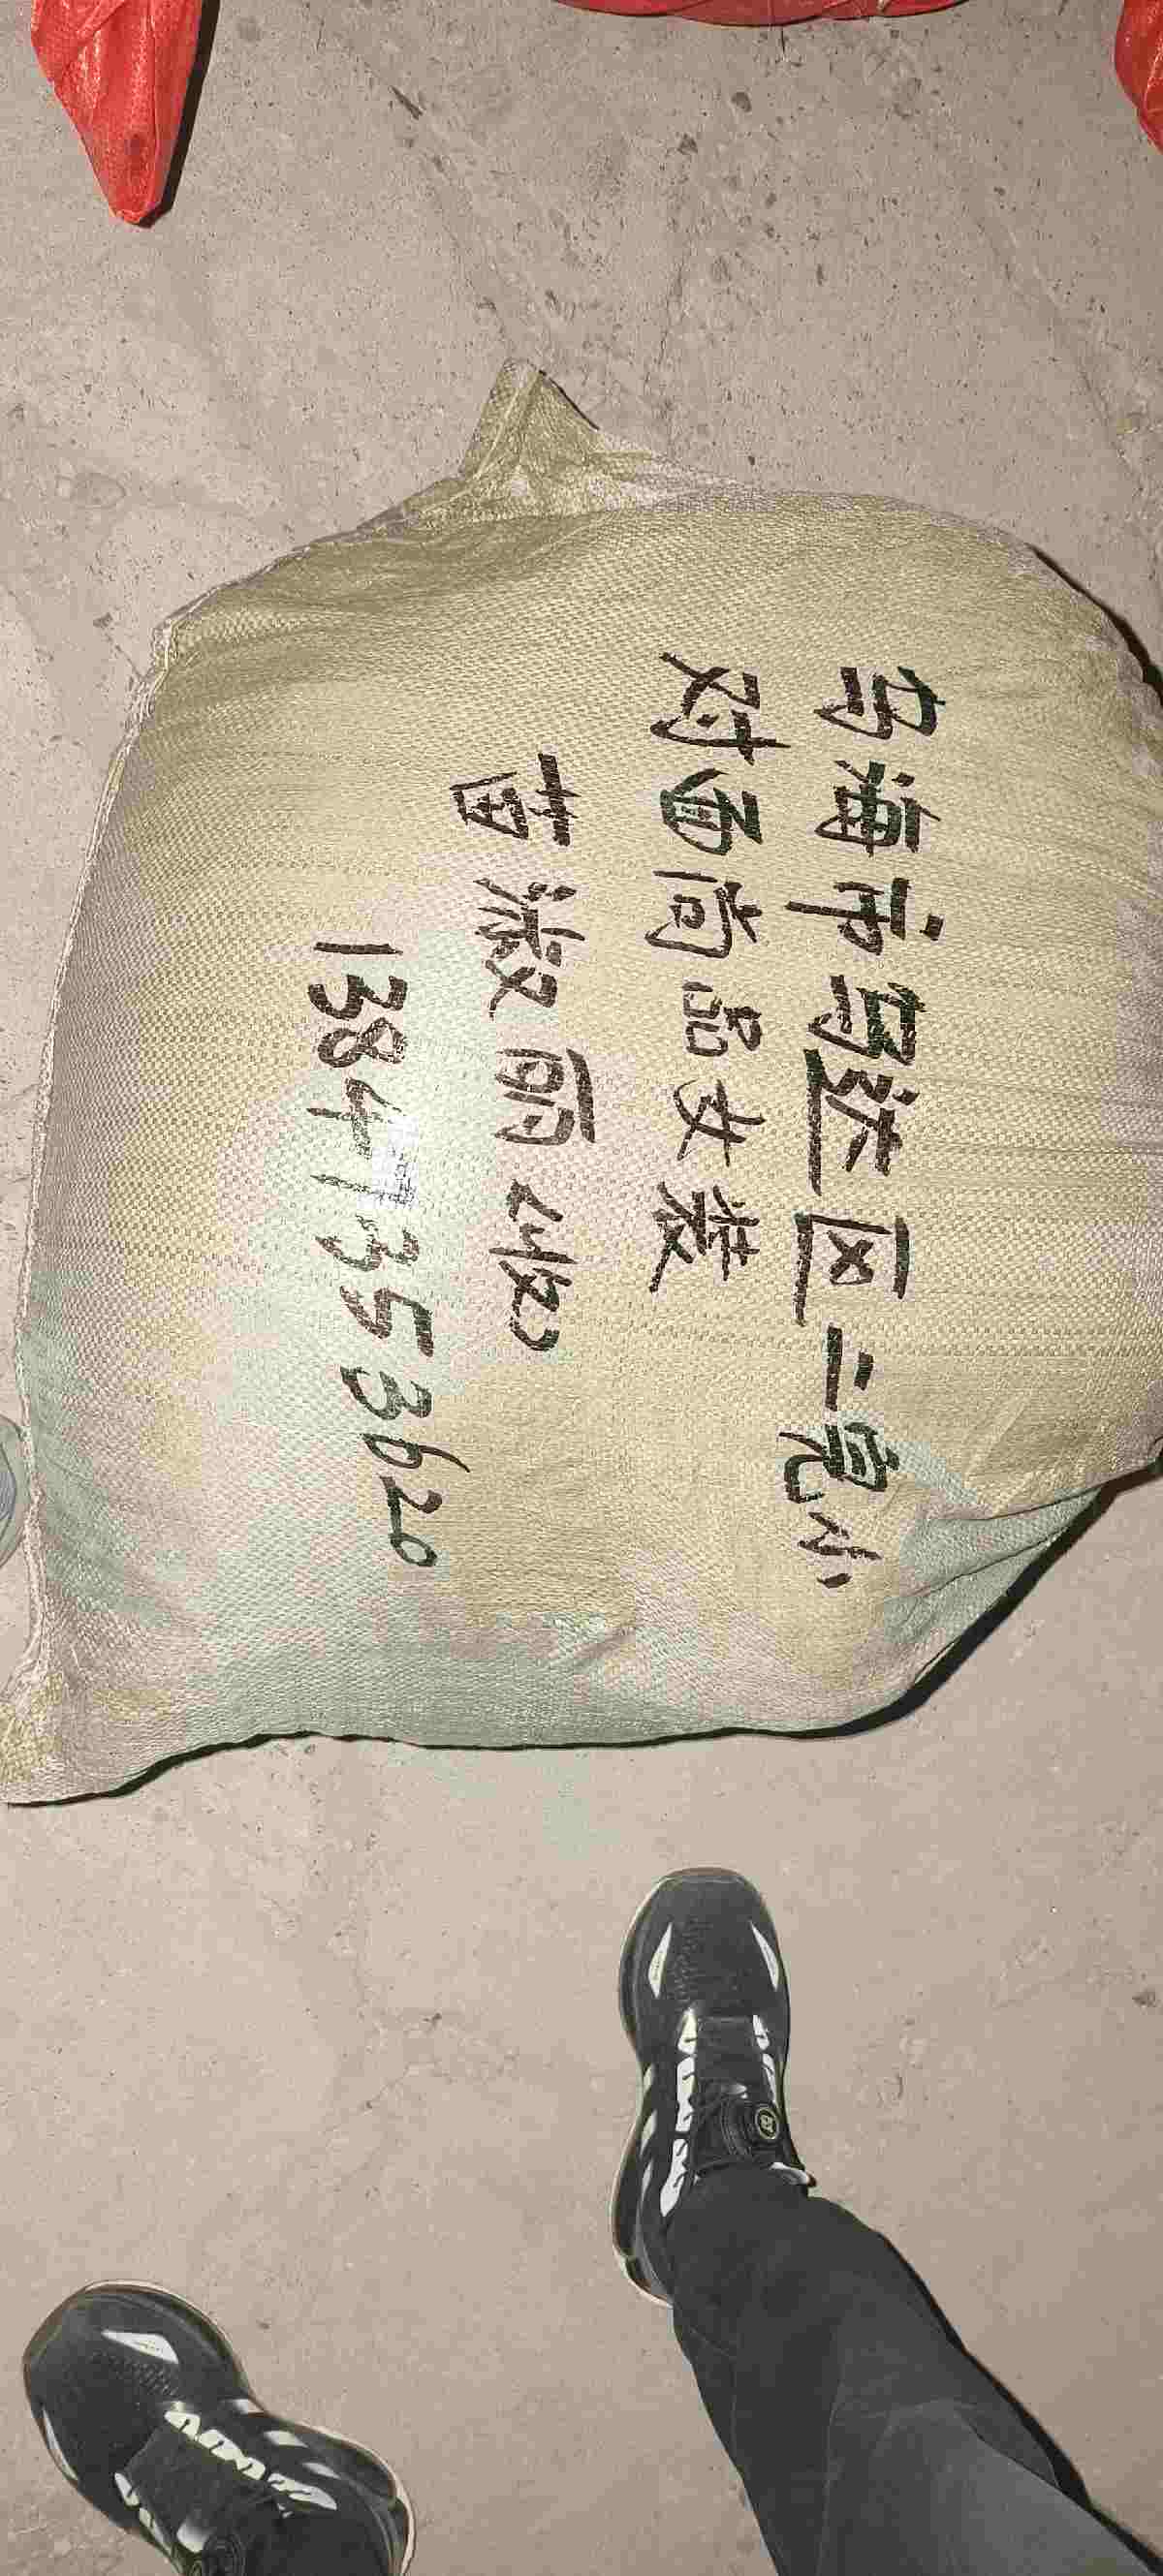 乌海市乌达区二完小
对面尚品女装
苗淑丽收
13847353620